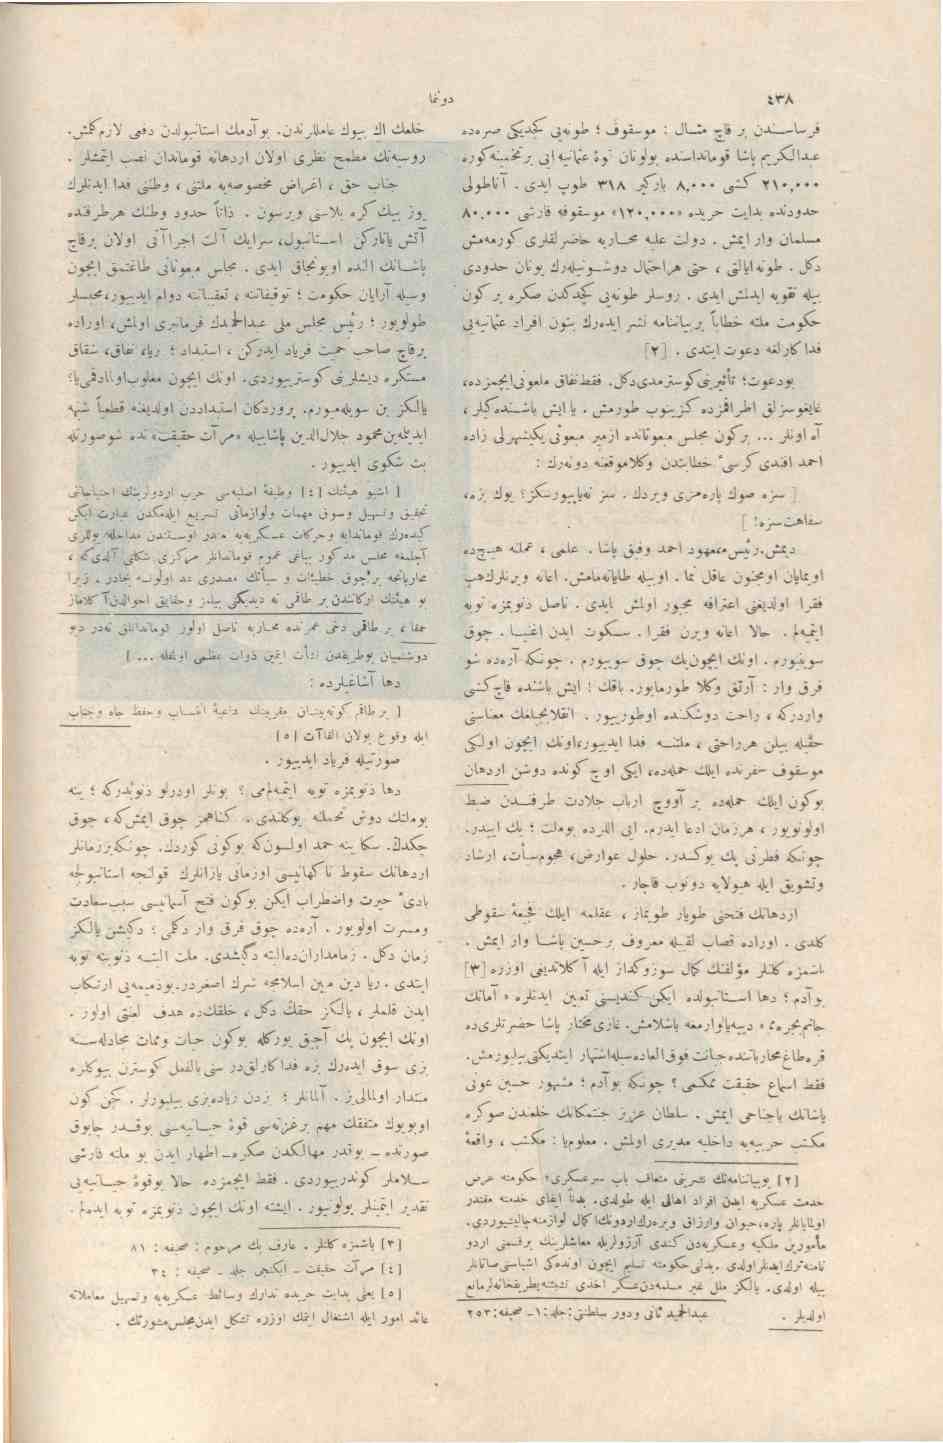 ٤٣٨
دونما
فرساسندن بر قاچ مثال : موسقوف ؛ طونه‌یی کچدیکی صره‌ده
عبدالکریم پاشا قوماندا‌سنده بولونان قوۀ عثمانیه ایی بر تخمینه کوره
٢١٠,٠٠٠ کشی ٨,٠٠٠ بارکیر ٣١٨ طوپ ایدی . آناطولی
حدودنده بدایت حربده «١٢٠,٠٠٠» موسقوفه قارشی ٨٠,٠٠٠
مسلمان وار ایمش . دولت علیه محاربه حاضرلقلری کورمه‌مش
دکل . طونه ایالتی ، حتی هر احتمال دوشونیله‌رك یونان حدودی
بیله تقویه ایدلمش ایدی . روسلر طونه‌یی کچدکدن صکره بر کون
حکومت ملته خطاباً بر بیاننامه نشر ایده‌رك بتون افراد عثمانیه‌یی
فداکارلغه دعوت ایتدی . [٢]
بودعوت؛ تأثیرینی کوسترمدی دکل. فقط نفاق ملعونی ایچمزده،
غایغوسزلق اطرافمزده کزینوب طورمش . یا ایش باشنده‌کیلر ،
آه اونلر ... بر کون مجلس مبعوثانده ازمیر مبعوثی یکیشهرلی زاده
احمد افندی کرسیٔ خطابتدن وکلا موقعنه دونه‌رك :
[ سزه صوك پاره‌مزی ویردك . سز نه‌یاپیورسکز؟ یوك بزه،
سفاهت سزه! ]
دیمش. رئیس معهود احمد وفیق پاشا . علمی ، عملنه هیچ ده
اویمایان اومجنون عاقل نما . اوبیله طایانه‌مامش. اعانه ویرنلرك هپ
فقرا اولدیغنی اعترافه مجبور اولمش ایدی . ناصل ذنوبمزه توبه
ایتمیه‌لم . حالا اعانه ویرن فقرا . سکوت ایدن اغنیا . چوق
سویلیورم . اونك ایچون پك چوق سوییورم . چونکه آره‌ده شو
فرق وار : آرتق وکلا طورمایور. باقك ! ایش باشنده قاچ کشی
واردرکه ، راحت دوشکنده اوطورییور . انقلابجیلغك معناسنی
حقیله بیلن هرراحتی ، ملتنه فدا ایدییور، اونك ایچون اولکی
موسقوف سفرنده ایلك حمله‌ده، ایکی اوچ کونده دوشن اردهان
بوکون ایلك حمله‌ده بر آووچ ارباب جلادت طرفندن ضبط
اولونویور ، هرزمان ادعا ایدرم. ایی اللرده بوملت ؛ پك اییدر.
چونکه فطرتی پك یوکسکدر. حلول عوارض، هجوم سیأت، ارشاد
وتشویق ایله هیولایه دونوب قاچار .
اردهانك فتحنی طویار طویماز ، عقلمه ایلك فجیعۀ سقوطی
کلدی . اوراده قصاب لقبیله معروف بر حسین پاشا وار ایمش .
باشمزه کلنلر مؤلفنك کمال سوزوکداز ایله آکلاتدیغی اوزره [٣]
بوآدم ؛ دها استانبولده ایکن کندیسنی تعیین ایدنلره « آمانك
جانم نجره‌مه » دییه یالوارمغه باشلامش. غازی مختار پاشا حضرتلری ده
قره‌طاغ محارباتنده جبانت فوق‌العاده‌سیله اشتهار ایتدیکنی بیلیورمش.
فقط اسماع حقیقت ممکنمی ؟ چونکه بوآدم ؛ مشهور حسین عونی
پاشانك باجناحی ایمش . سلطان عزیز جنتمکانك خلعندن صوکره
مکتب حربیه‌یه داخلیه مدیری اولمش . معلوم یا : مکتب ، واقعۀ
[٢] بوبیاننامه‌نك نشرینی متعاقب باب سرعسکری» حکومته عرض
خدمت عسکریه ایدن افراد اهالی ایله طولدی. بدناً ایفای خدمته مقتدر
اولمایانلر پاره، حیوان وارزاق ویره‌رك اردونك اکمال لوازمنه چالیشیوردی.
مأمورین ملکیه وعسکریه‌دن کندی آرزولریله معاشلرینك برقسمنی اردو
نامنه ترك ایدنلر اولدی. بدلنی حکومته تسلیم ایچون اونده‌کی اشیاسنی صاتانلر
بیله اولدی. یالکز ملل غیر مسلمه‌دن عسکر اخذی تشبثنه بطریقخانه‌لر مانع
اولدیلر . عبدالحمید ثانی ودور سلطنتی: جلد: ١ـ صحیفه: ٢٥٣
خلعك اك بیوك عاملارندن. بوآدمك استانبولدن دفعی لازم کلمش.
روسیه‌نك مطمح نظری اولان اردهانه قوماندان نصب ایتمشلر .
جناب حق ، اغراض مخصوصه‌یه ملتنی ، وطننی فدا ایدنلرك
یوز بیك کره بلاسنی ویرسون . ذاتاً حدود وطنك هر طرفنده
آتش یانارکن استانبول، سرایك آلت اجراآتی اولان برقاچ
پاشانك النده اویونجاق ایدی . مجلس مبعوثانی طاغتمق ایچون
وسیله آرایان حکومت ؛ توقیفاتنه ، تعقیباتنه دوام ایدییور، محبسلر
طولویور ؛ رئیس مجلس ملی عبدالحمیدك فرمانبری اولمش، اوراده
برقاچ صاحب حمیت فریاد ایدرکن ، استبداد ؛ ریا، نفاق، شقاق
مستکره دیشلرینی کوسترییوردی. اونك ایچون مغلوب اولمادقمی یا؟
یالکز بن سویله‌میورم. پروردکان استبداددن اولدیغنه قطعیاً شبهه
ایدیلمه‌ین محمود جلال‌الدین پاشا بیله «مرآت حقیقت» نده شوصورتله
بث شکوی ایدییور .
[ اشبو هیئتك [٤] وظیفۀ اصلیه‌سی حرب اردولرینك احتیاجاتنی
تحقیق وتسهیل وسوق مهمات ولوازماتی تسریع ایله‌مکدن عبارت ایکن
کیده‌رك قوماندایه وحرکات عسکریه‌یه مدر اوستندن مداخله یوللری
آچلمغه مجلس مذکور بیاغی عموم قوماندانلر مرکزی شکلنی آلدی که ،
محاربانجه برچوق خطیئات و سیآتك مصدری عد اولونسه بجادر . زیرا
بو هیئتك ارکانندن بر طاقمی نه دیدیکنی بیلمز وحقایق احوالدن آکلاماز
حمقا ، بر طاقمی دخی عمرنده محاربه ناصل اولور قوماندانلق نه‌در دیو
دوشنمیان بوطریقدن نشأت ایتمین ذوات عظمی اولمغله ... ]
دها آشاغیلرده :
[ برطاقم کونه‌بینان مقربینك داعیۀ انتساب وحفظ جاه وجناب
ایله وقوع بولان القاآت [٥]
صورتیله فریاد ایدییور .
دها ذنوبمزه توبه ایتمیه‌لم می ؟ بونلر اودرلو ذنوبدرکه ؛ ینه
بوملتك دوش تحملنه یوکلندی . کناهمز چوق ایمش که ، چوق
چکدك. سکا ینه حمد اولسون که بوکونی کوردك. چونکه بر زمانلر
اردهانك سقوط ناکهانیسی اوزمانی یازانلرك قولنجه استانبولجه
بادیٔ حیرت واضطراب ایکن بوکون فتح آسمانیسی سبب سعادت
ومسرت اولویور . آره‌ده چوق فرق وار دکلمی ؛ دکیشن یالکز
زمان دکل . زمامداران ده البته دکیشدی. ملت البته ذنوبنه توبه
ایتدی. ریا دین مبین اسلامجه شرك اصغردر. بوذمیمه‌یی ارتکاب
ایدن قلملر ، یالکز حقك دکل ، خلقك ده هدف لعنتی اولور .
اونك ایچون پك آچیق یورکله بوکون حیات وممات مجادله‌سنه
بزی سوق ایده‌رك بزه فداکارلق درسنی بالفعل کوسترن بیوکلره
منتدار اولمالی‌یز . آلمانلر ؛ بزدن زیاده بزی بیلیورلر . کچن کون
اوبویوك متفقك مهم برغزته‌سی قوۀ حیاتیه‌سی بوقدر چابوق
صورتده ـ بوقدر مهالکدن صکره ـ اظهار ایدن بو ملته قارشی
سلاملر کوندرییوردی . فقط ایچمزده حالا بوقوۀ حیاتیه‌یی
تقدیر ایتمینلر بولونیور. ایشته اونك ایچون ذنوبمزه توبه ایده‌لم .
[٣] باشمزه کلنلر . عارف بك مرحوم : صحیفه : ٨١
[٤] مرآت حقیقت ـ ایکنجی جلد ـ صحیفه : ٣٤
[٥] یعنی بدایت حربده تدارك وسائط عسکریه‌یه وتسهیل معاملاته
عائد امور ایله اشتغال ایتمك اوزره تشکل ایدن مجلس مشورتك .